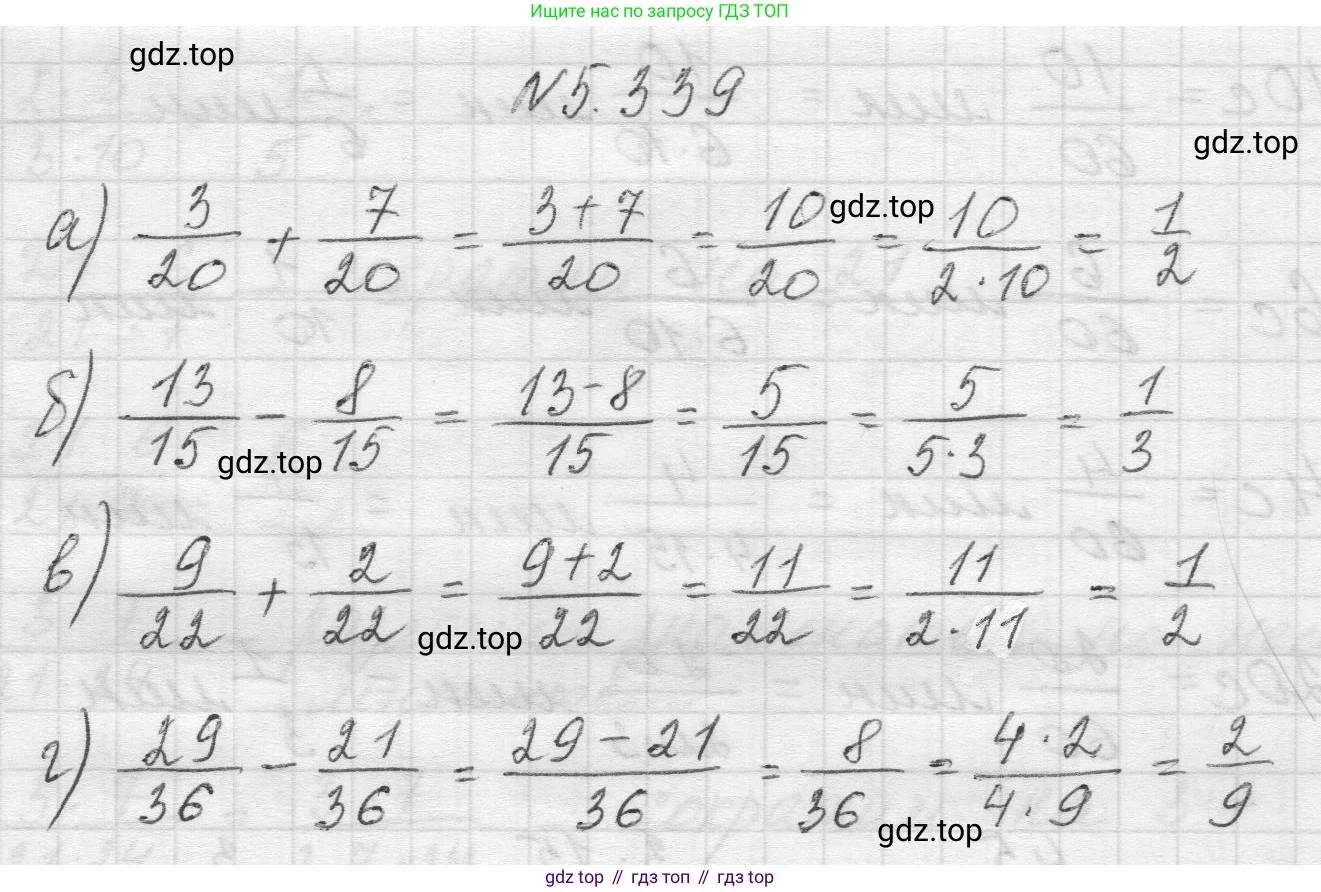 Ищите нас по запросу ГДЗ ТОП
gdz.top
N 5.339
gdz.top
а) 3/20 + 7/20 = 3+7/20 = 10/20 = 10/2·10 = 1/2
gdz.top
б) 13/15 - 8/15 = 13-8/15 = 5/15 = 5/5·3 = 1/3
gdz.top
в) 9/22 + 2/22 = 9+2/22 = 11/22 = 11/2·11 = 1/2
gdz.top
г) 29/36 - 21/36 = 29-21/36 = 8/36 = 4·2/4·9 = 2/9
gdz.top
gdz top // гдз топ // гдз top